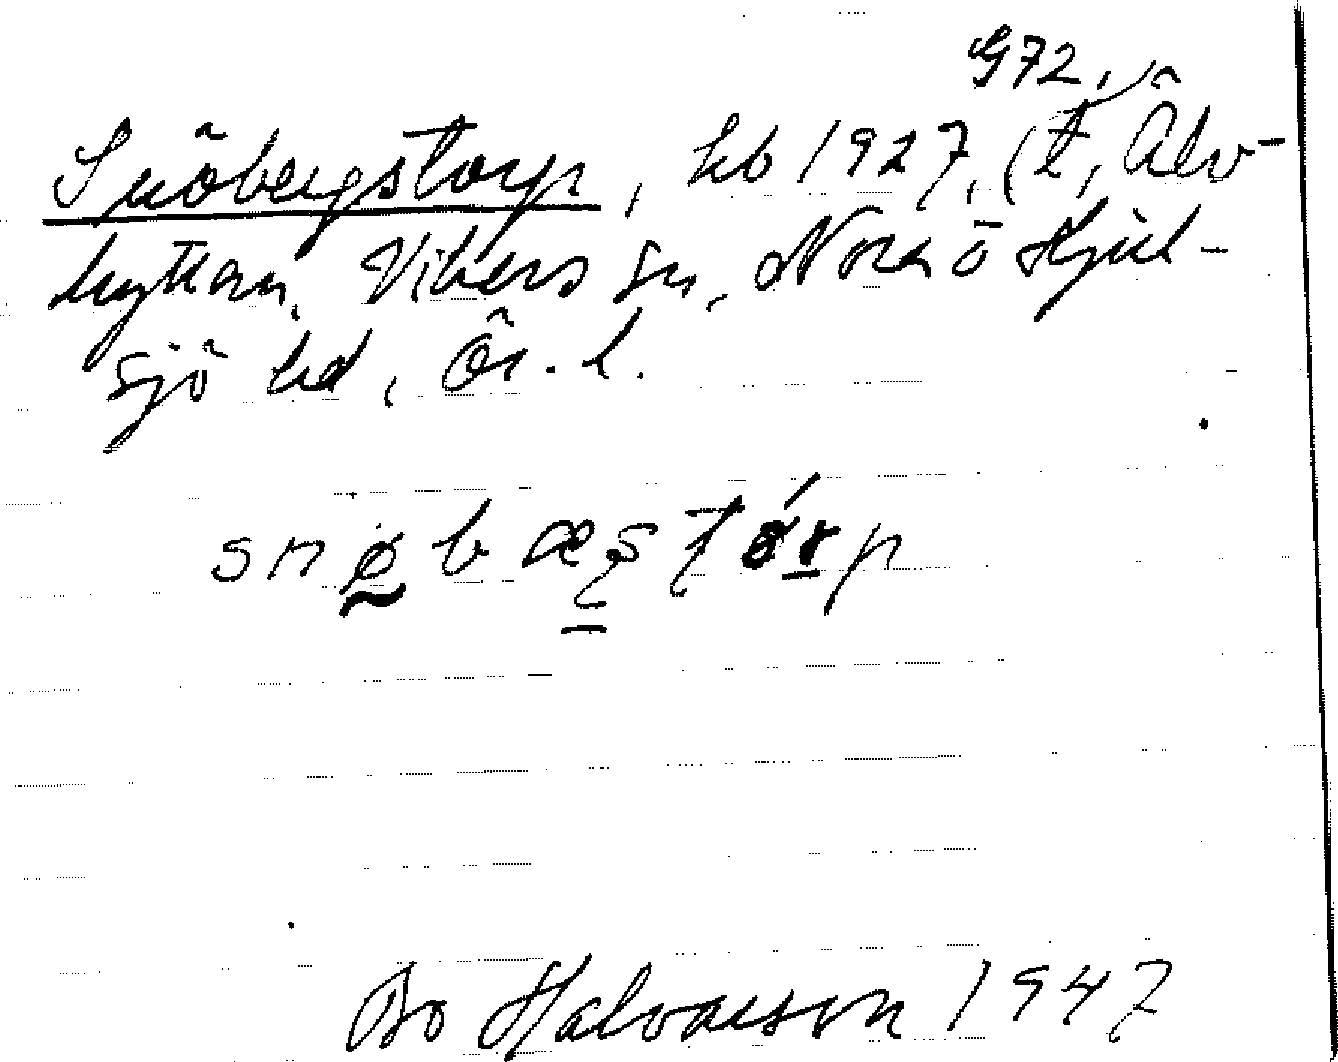 G72.
Snöbergstorp, hb 1927, (t, Älv-
hyttan, Vikers sn, Nora o Hjul-
sjö hd, Ör. l.
snøbæʂʈórp
Bo Halvarson 1947